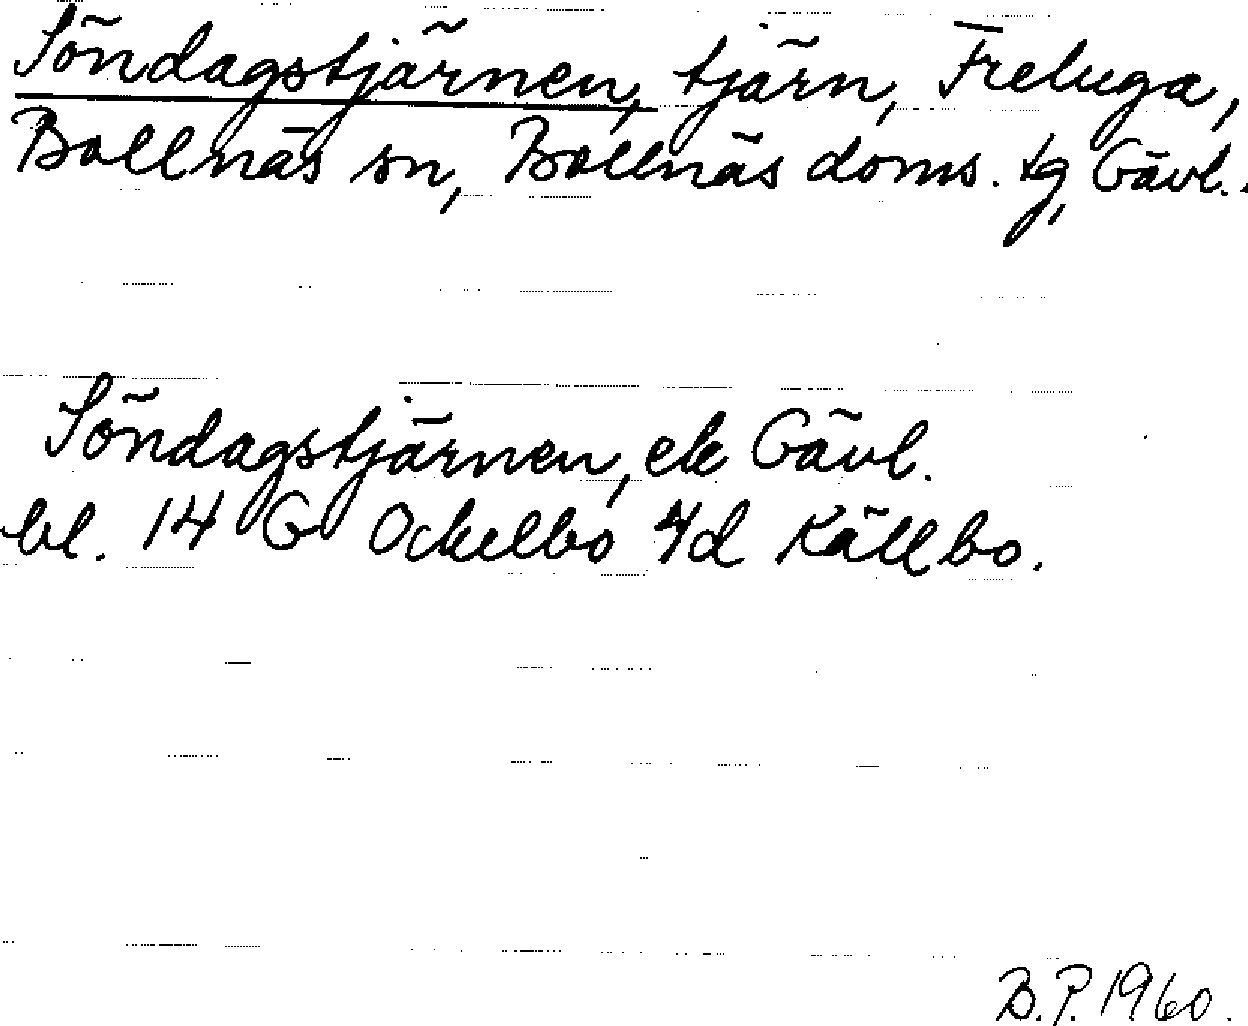 Söndagstjärnen, tjärn, Freluga,
Bollnäs sn, Bollnäs doms. tg, Gävl..
Söndagstjärnen, ek Gävl.
bl. 14 G Ockelbo 4d Källbo.
B.P. 1960.